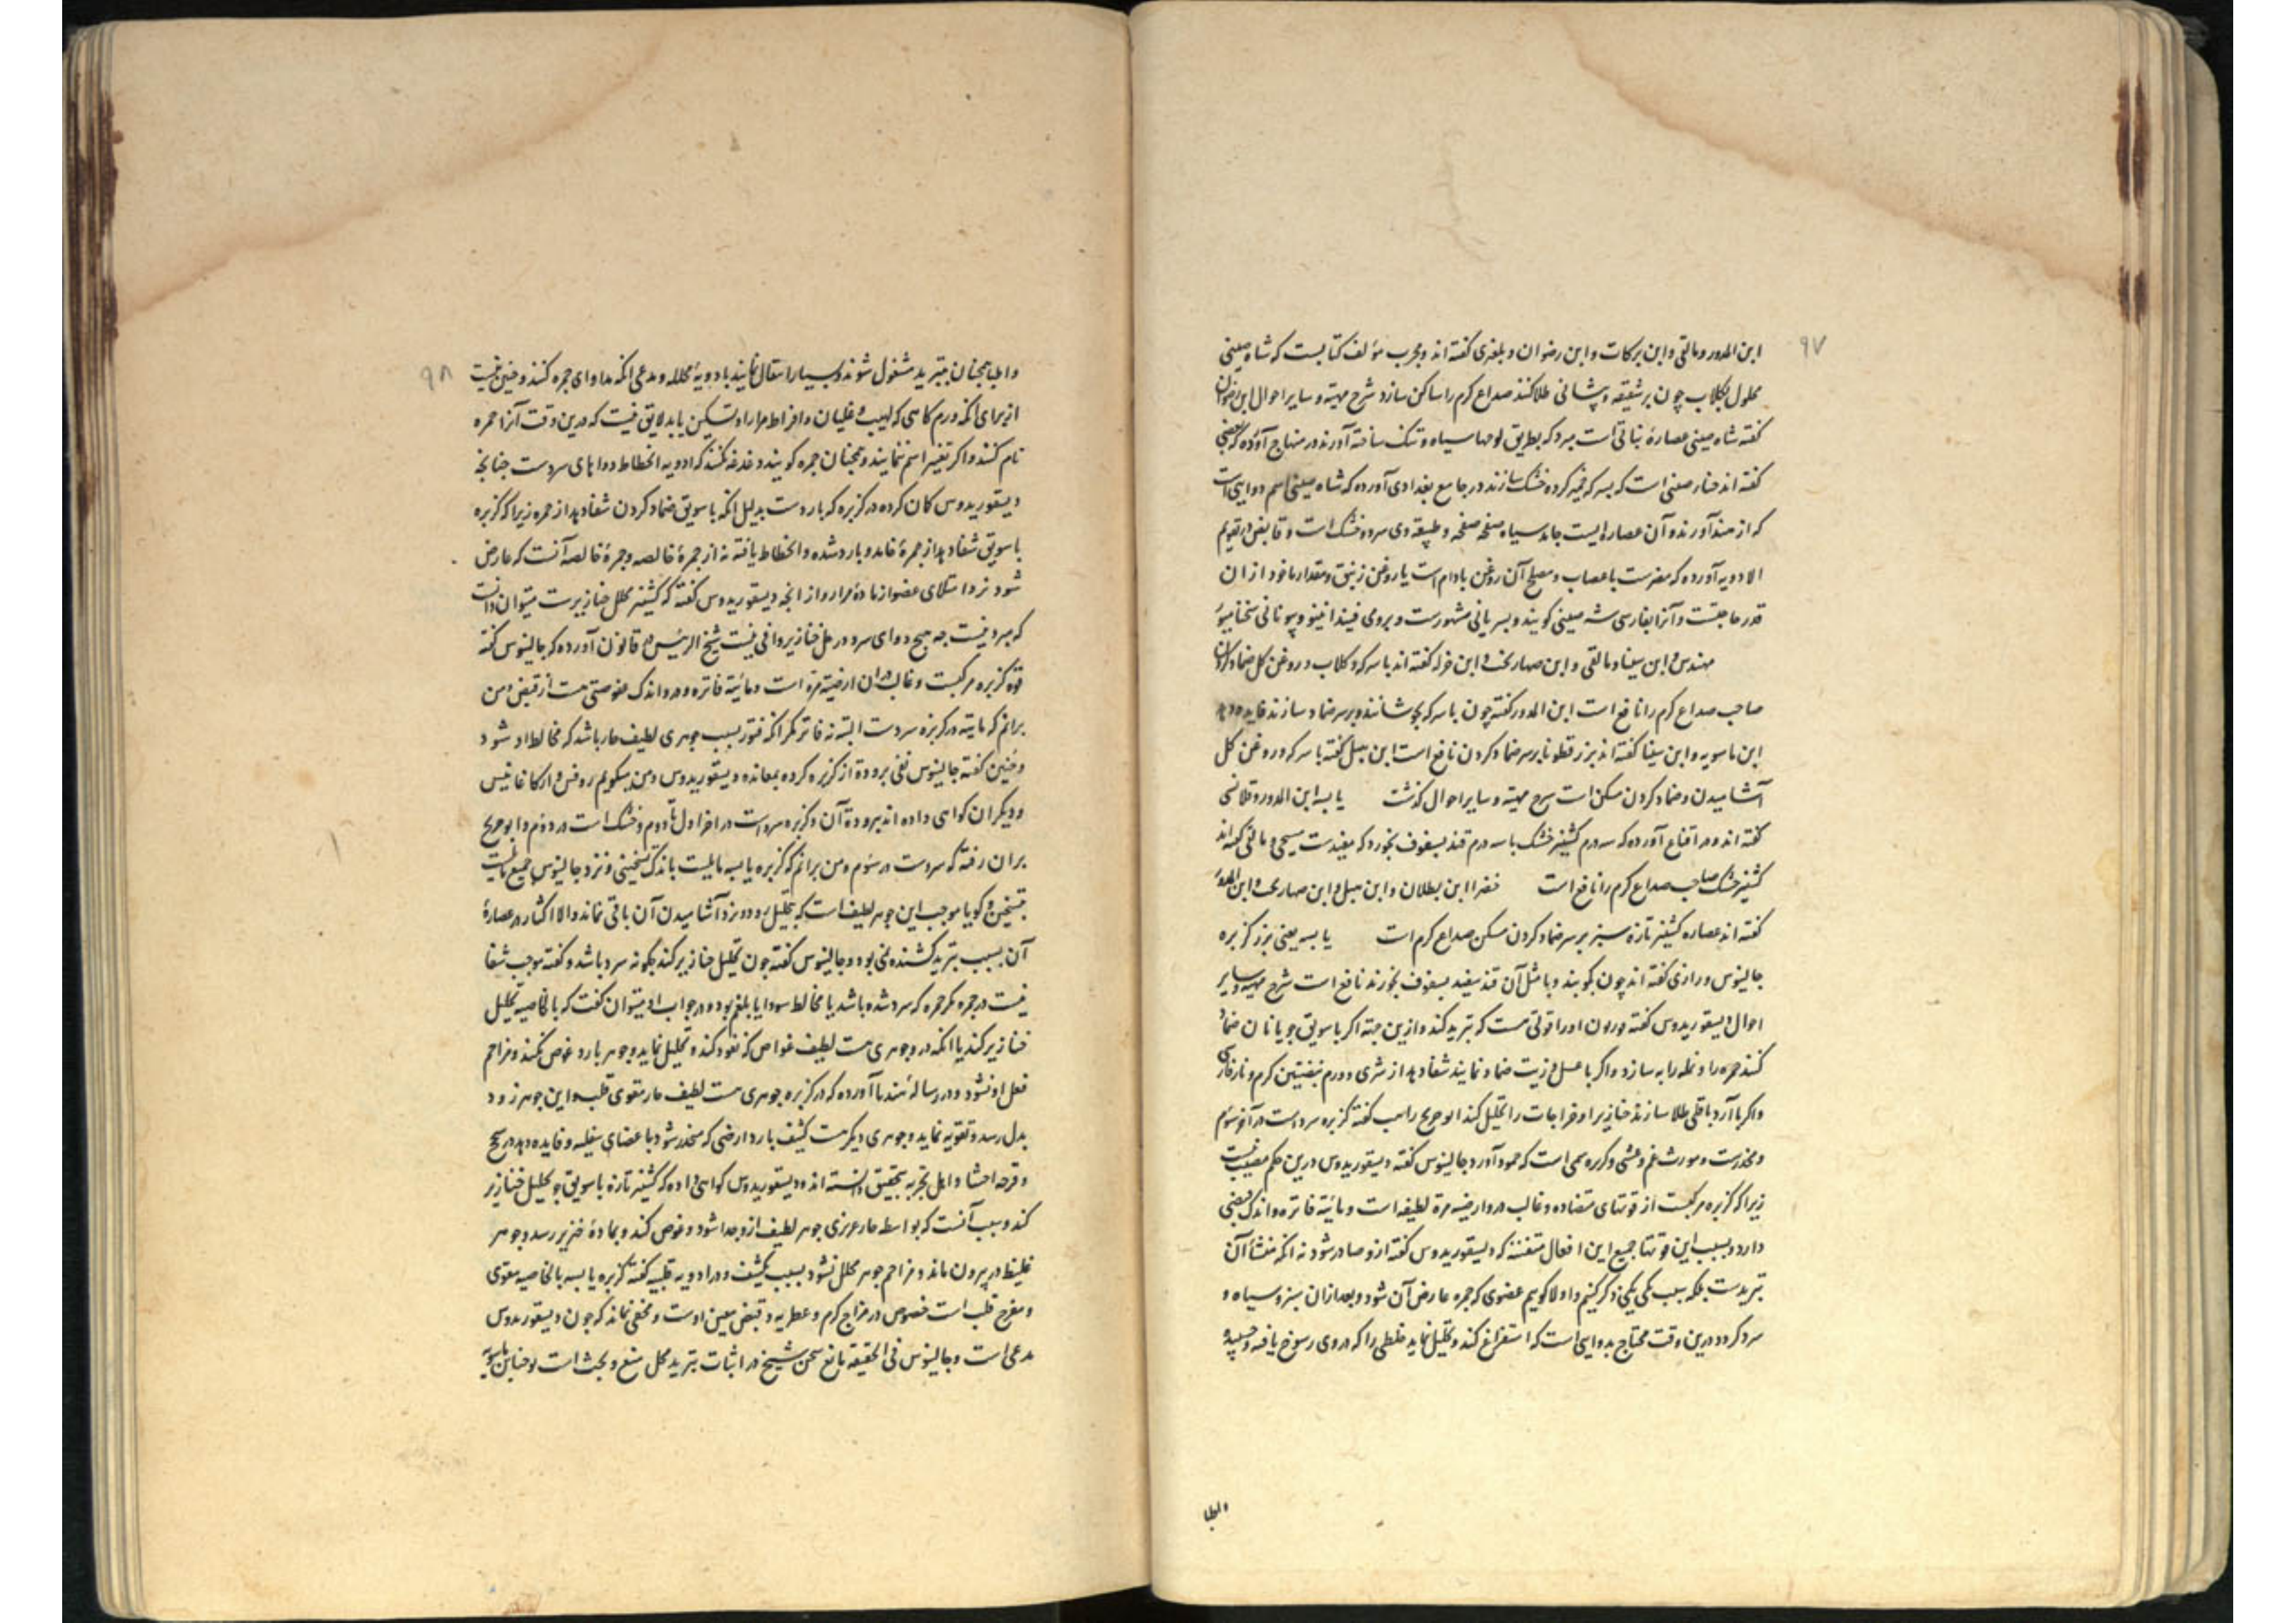 ۹۷
ابن المدور و مالقی و ابن برکات و ابن رضوان و بلغری گفته اند و مجرب مؤلف کتابست که شاه صینی
محلول بگلاب چون بر شقیقه و پیشانی طلا کنند صداع گرم را ساکن سازد شرح مهیته و سایر احوال ابن رضوان
گفته شاه صینی عصارهٔ نباتی است مبرد که بطریق لوحها سیاه و تنک ساخته آورند در منهاج آورده که بعضی
گفته اند حنار صینی است که بسرکه خمیر کرده خشک سازند در جامع بغدادی آورده که شاه صینی اسم دوایی است
که از هند آورند و آن عصاره ایست جامد سیاه صفحه صفحه و طبیعة وی سرد و خشک است و قابض در تقویم
الادویه آورده که مضرست باعصاب و مصلح آن روغن بادام است یا روغن زنبق و مقدار ماخوذ از ان
قدر حاجتست و آنرا بفارسی شه صینی گویند و بسریانی مشهورست و برومی
مهندس و ابن سینا و مالقی و ابن صهاربخت و ابن خوله گفته اند با سرکه و گلاب و روغن گل ضماد کردن
صاحب صداع گرم را نافع است ابن المدور گفته چون با سرکه بجوشانند و بر سر ضماد سازند فایده دهد
ابن ماسویه و ابن سینا گفته اند بزر قطونا بر سر ضماد کردن نافع است ابن هبل گفته با سرکه و روغن گل
آشامیدن و ضماد کردن مسکن است شرح مهیته و سایر احوال گذشت یابسه ابن المدور و قلانسی
گفته اند و در اقناع آورده که سه درم کشنیز خشک با سه درم قند بسفوف بخورد که مفیدست مسیحی و مالقی گفته اند
کشنیز خشک صاحب صداع گرم را نافع است خضرا ابن بطلان و ابن هبل و ابن صهاربخت و ابن المدور
گفته اند عصاره کشنیز تازه سبز بر سر ضماد کردن مسکن صداع گرم است یابسه یعنی بزر کزبره
جالینوس و رازی گفته اند چون بکوبند و با مثل آن قند سفید بسفوف بخورند نافع است شرح مهیته و سایر
احوال دیسقوریدوس گفته قوریون او را قوتی هست که تبرید کند و ازین جهة اگر با سویق جو یا نان ضماد
کنند حمره را و نمله را به سازد و اگر با عسل و زیت ضماد نمایند شفا دهد از شری و ورم بیضتین گرم و نار فارسی
و اگر با آرد باقلی طلا سازند خنازیر و خراجات را تحلیل کند ابو جریح راهب گفته کزبره سردست در آخر سوم
و مخدرست و مورث غم و غشی و کزبره سمی است که جمود آورد جالینوس گفته دیسقوریدوس درین حکم مصیب نیست
زیرا که کزبره مرکبست از قوتهای متضاده و غالب در و ارضیه مرة لطیفه است و مائیة فاتره و اندک قبضی
دارد و بسبب این قوتها جمیع این افعال متفننه که دیسقوریدوس گفته ازو صادر شود نه انکه منشأ آن
تبریدست بلکه سبب یکی یکی ذکر کنیم و اولا گوییم عضوی که حمره عارض آن شود و بعد از ان سبز و سیاه و
سرد گردد درین وقت محتاج بدوایی است که استفراغ کند و تحلیل نماید خلطی را که در وی رسوخ یافته و چسپیده
و اطبا
۹۸
و اطبا همچنان بتبرید مشغول شوند و بسیار استقال نمایند بادویهٔ محلله و مدعی انکه مداوای حمره کنند و چنین نیست
از برای انکه ورم گاهی که لهیب و غلیان و افراط حرارة و تسکین یابد لایق نیست که درین وقت آنرا حمره
نام کنند و اگر تغییر اسم ننمایند و همچنان حمره گویند دغدغه نکنند که ادویه انحطاط دواهای سردست چنانچه
دیسقوریدوس گمان کرده در کزبره که باردست بدلیل انکه با سویق ضماد کردن شفا دهد از حمره زیرا که کزبره
با سویق شفا دهد از حمرهٔ خامد و بارد شده و انحطاط یافته نه از حمرهٔ خالصه و حمرهٔ خالصه آنست که عارض
شود نزد امتلای عضو از مادهٔ مراره و از انچه دیسقوریدوس گفته که کشنیز محلل خنازیرست میتوان دانست
که مبرد نیست چه هیچ دوای سرد در حل خنازیر وافی نیست شیخ الرئیس در قانون آورده که جالینوس گفته
قوة کزبره مرکبست و غالب در ان ارضیه مرة است و مائیة فاترة و درو اندک عفوصتی هست از قبض و من
برانم که مائیته در کزبره سردست البته نه فاتر مگر انکه فتور بسبب جوهری لطیف حار باشد که مخالط او شود
و حنین گفته جالینوس نفی برودة از کزبره کرده بمعانده دیسقوریدوس و من میگویم روفس و ارکاغانیس
و دیگران گواهی داده اند ببرودة آن و کزبره سردست در آخر اول تا دوم و خشک است در دوم و ابو جریح
بران رفته که سردست در سوم و من برانم که کزبره یابسه مایلست باندک تسخینی و نزد جالینوس جمیع مایلست
بتسخین و گویا موجب این جوهر لطیف است که بتحلیل رود و نزد آشامیدن آن باقی نماند و الا اکثار در عصارهٔ
آن بسبب تبرید کشنده نمی بود و جالینوس گفته چون تحلیل خنازیر کند چگونه سرد باشد و گفته موجب شفا
نیست در حمره مگر حمره که سرد شده باشد یا مخالط سودا یا بلغم بوده در جواب او میتوان گفت که بالخاصیه تحلیل
خنازیر کند یا انکه در و جوهری هست لطیف غواص که نفوذ کند و تحلیل نماید و جوهر بارد غوص نکند و مزاحم
فعل او نشود و در رسالهٔ هندبا آورده که در کزبره جوهری هست لطیف حار مقوی قلب و این جوهر زود
بدل رسد و تقویه نماید و جوهری دیگر هست کثیف بارد ارضی که منحدر شود باعضای سفلیه و فایده دهد در سحج
و قرحه احشا و اهل تجربه بتحقیق دانسته اند و دیسقوریدوس گواهی داده که کشنیز تازه با سویق جو تحلیل خنازیر
کند و سبب آنست که بواسطه حار غریزی جوهر لطیف ازو جدا شود و غوص کند و بمادهٔ خنزیر رسد و جوهر
غلیظ در بیرون ماند و مزاحم جوهر محلل نشود بسبب کثیف و در ادویه قلبیه گفته کزبره یابسه بالخاصیه مقوی
و مفرح قلب است خصوص در مزاج گرم و عطریه و قبض معین اوست و مخفی نماند که چون دیسقوریدوس
مدعی است و جالینوس فی الحقیقه مانع سخن شیخ در اثبات تبرید محل منع و بحث است